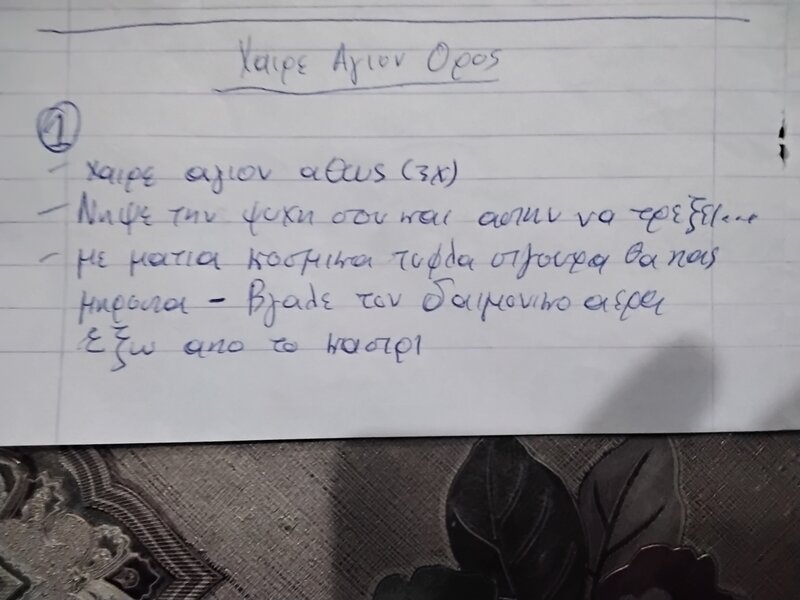 Χαιρε Αγιον Ορος
1
- χαιρε αγιον αθως (3χ)
- Νιψε την ψυχη σου και αστην να τρεξει...
- με ματια κοσμικα τυφλα σιγουρα θα πας
μπροστα - Βγαλε τον δαιμονικο αερα
εξω απο το καστρι